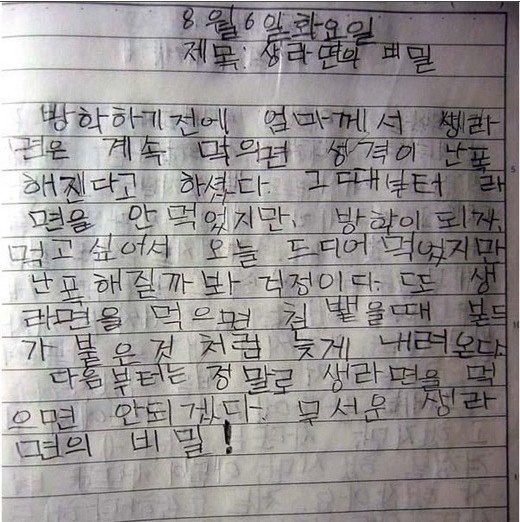 8월 6일 화요일
제목: 생라면의 비밀
방학하기전에 엄마께서 쌩라
면은 계속 먹의면 성격이 난폭
해진다고 하셨다. 그때부터 라
면을 안 먹었지만, 방학이 되자,
먹고 싶어서 오늘 드디어 먹었지만
난폭해질까봐 걱정이다. 또 생
라면을 먹으면 침 뱉을때 본드
가 붙은것 처럼 늦게 내려온다.
다음부터는 정말로 생라면을 먹
으면 안되겠다. 무서운 생라
면의 비밀!